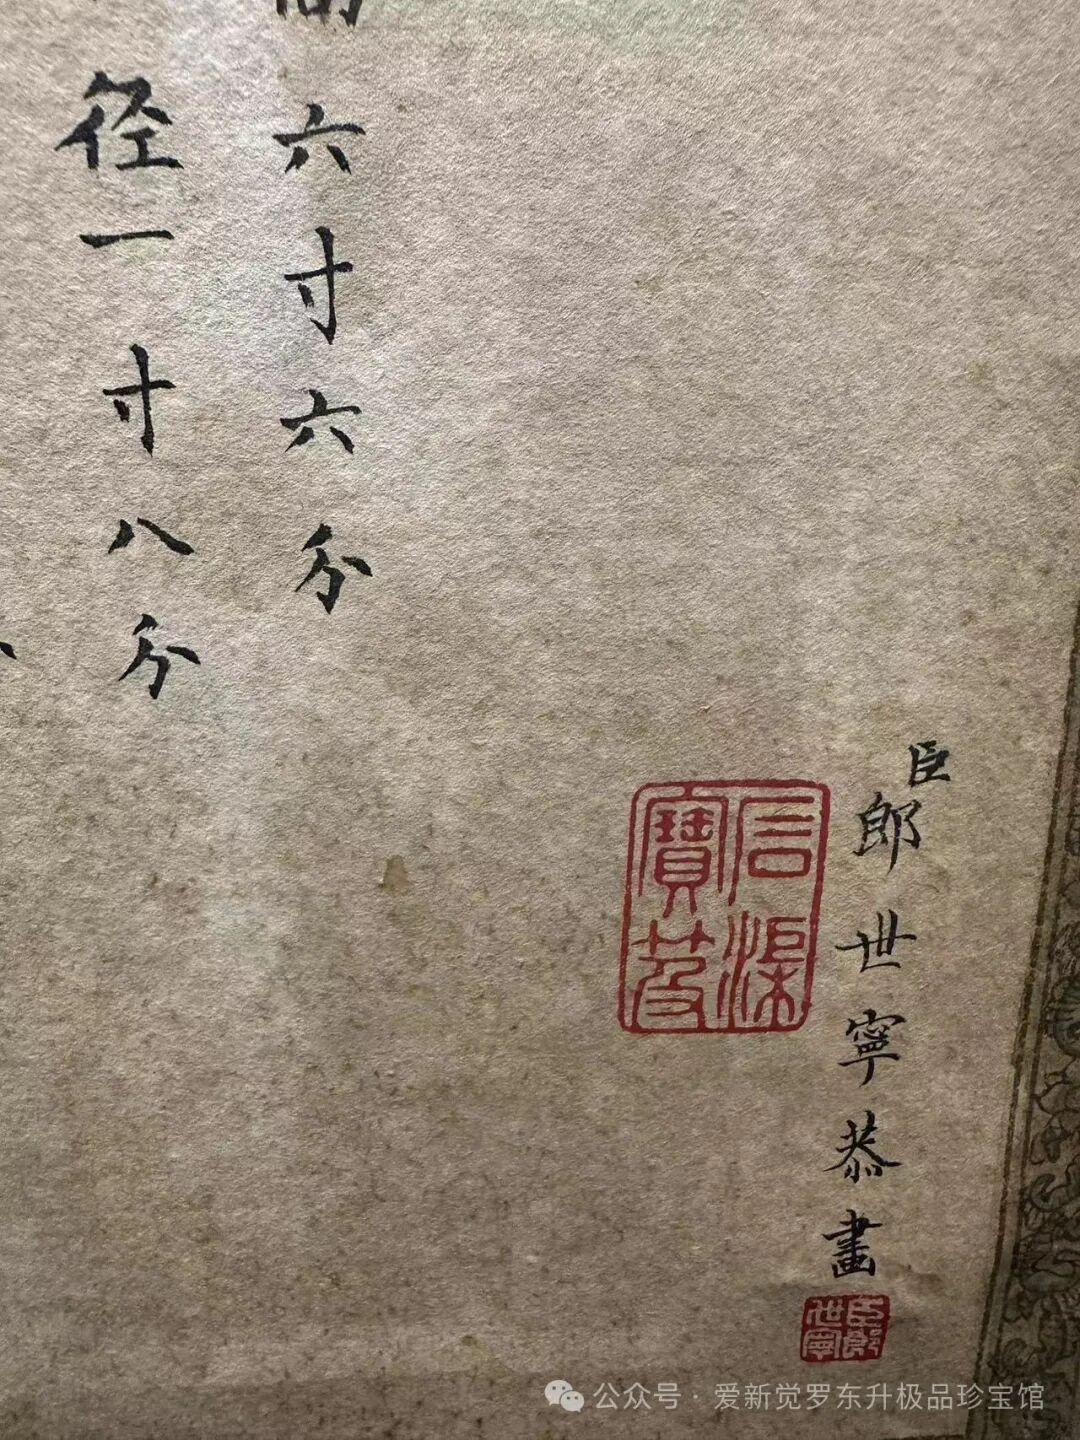 六寸六分
径一寸八分
臣郎世寧恭畫
石渠
寶笈
臣郎
世寧
公众号·爱新觉罗东升极品珍宝馆